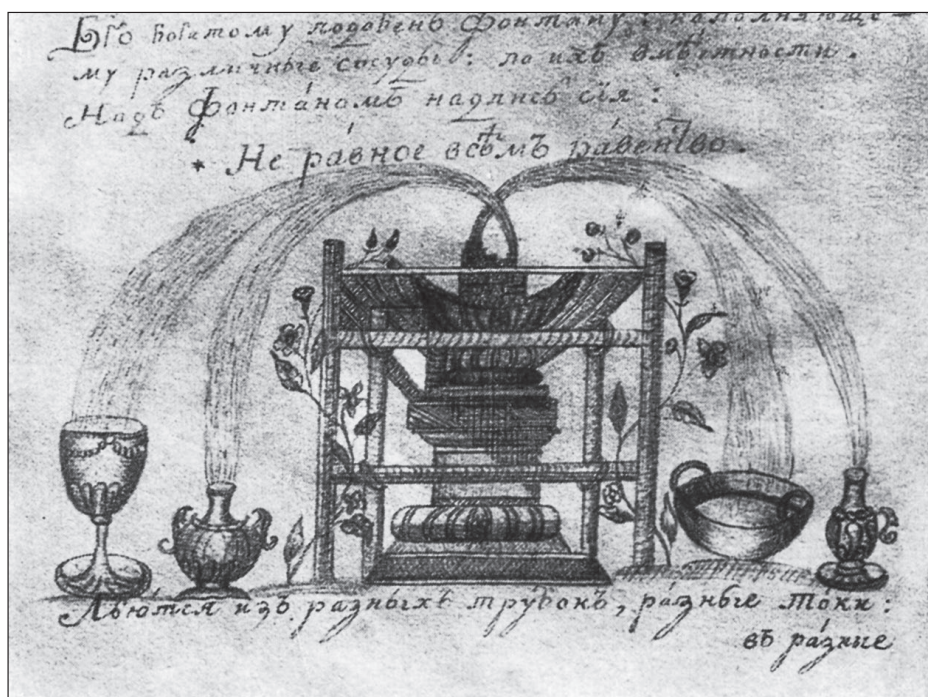 Бгъ богатому подобенъ фонтану, наполняюще-
му различные сосуды: по ихъ вмѣстности.
Надъ фонта́номъ надпись сія:
* Не ра́вное всѣмъ ра́венство.
Лью́тся изъ разныхъ трубокъ, ра́зные то́ки:
въ ра́зные